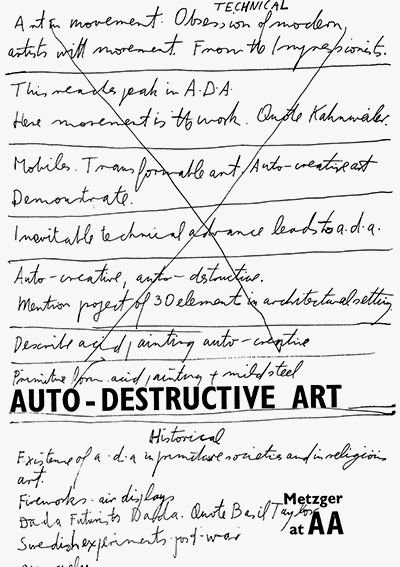 TECHNICAL
Art in movement. Obsession of modern
artists with movement. From the Impressionists.
This reaches peak in A.D.A.
Here movement is the work. Quote Kahnweiler.
Mobiles. Transformable art, Auto-creative art
Demonstrate.
Inevitable technical advance leads to a.d.a.
Auto-creative, auto-dstructive.
Mention project of 30 element in architectural setting
Describe acid painting auto-creative
Primitive form. acid painting + mild steel
AUTO-DESTRUCTIVE ART
Historical
Existence of a.d.a in primitive societies and in religious
art.
Fireworks. air displays
Dada Futurists Dadda. Quote Basil Taylor
Swedish experiments post-war
Metzger
at AA